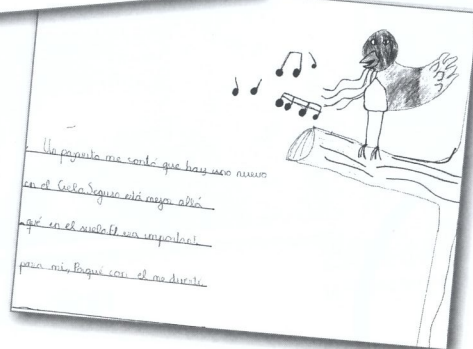 Un pajarito me contó que hay uno nuevo
en el Cielo. Seguro está mejor allá
qué en el suelo. El era important
para mi, Porqué con el me divertí